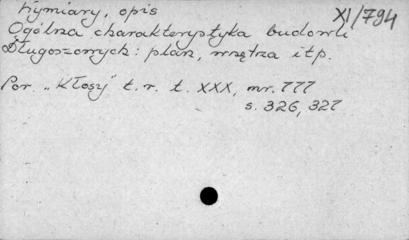 Wymiary, opis
XI/794
Ogólna charakterystyka budowli
Długoszowych: plan, wnętrza itp.
Por. „Kłosy" t.r. t. XXX, nr. 777
s. 326, 327